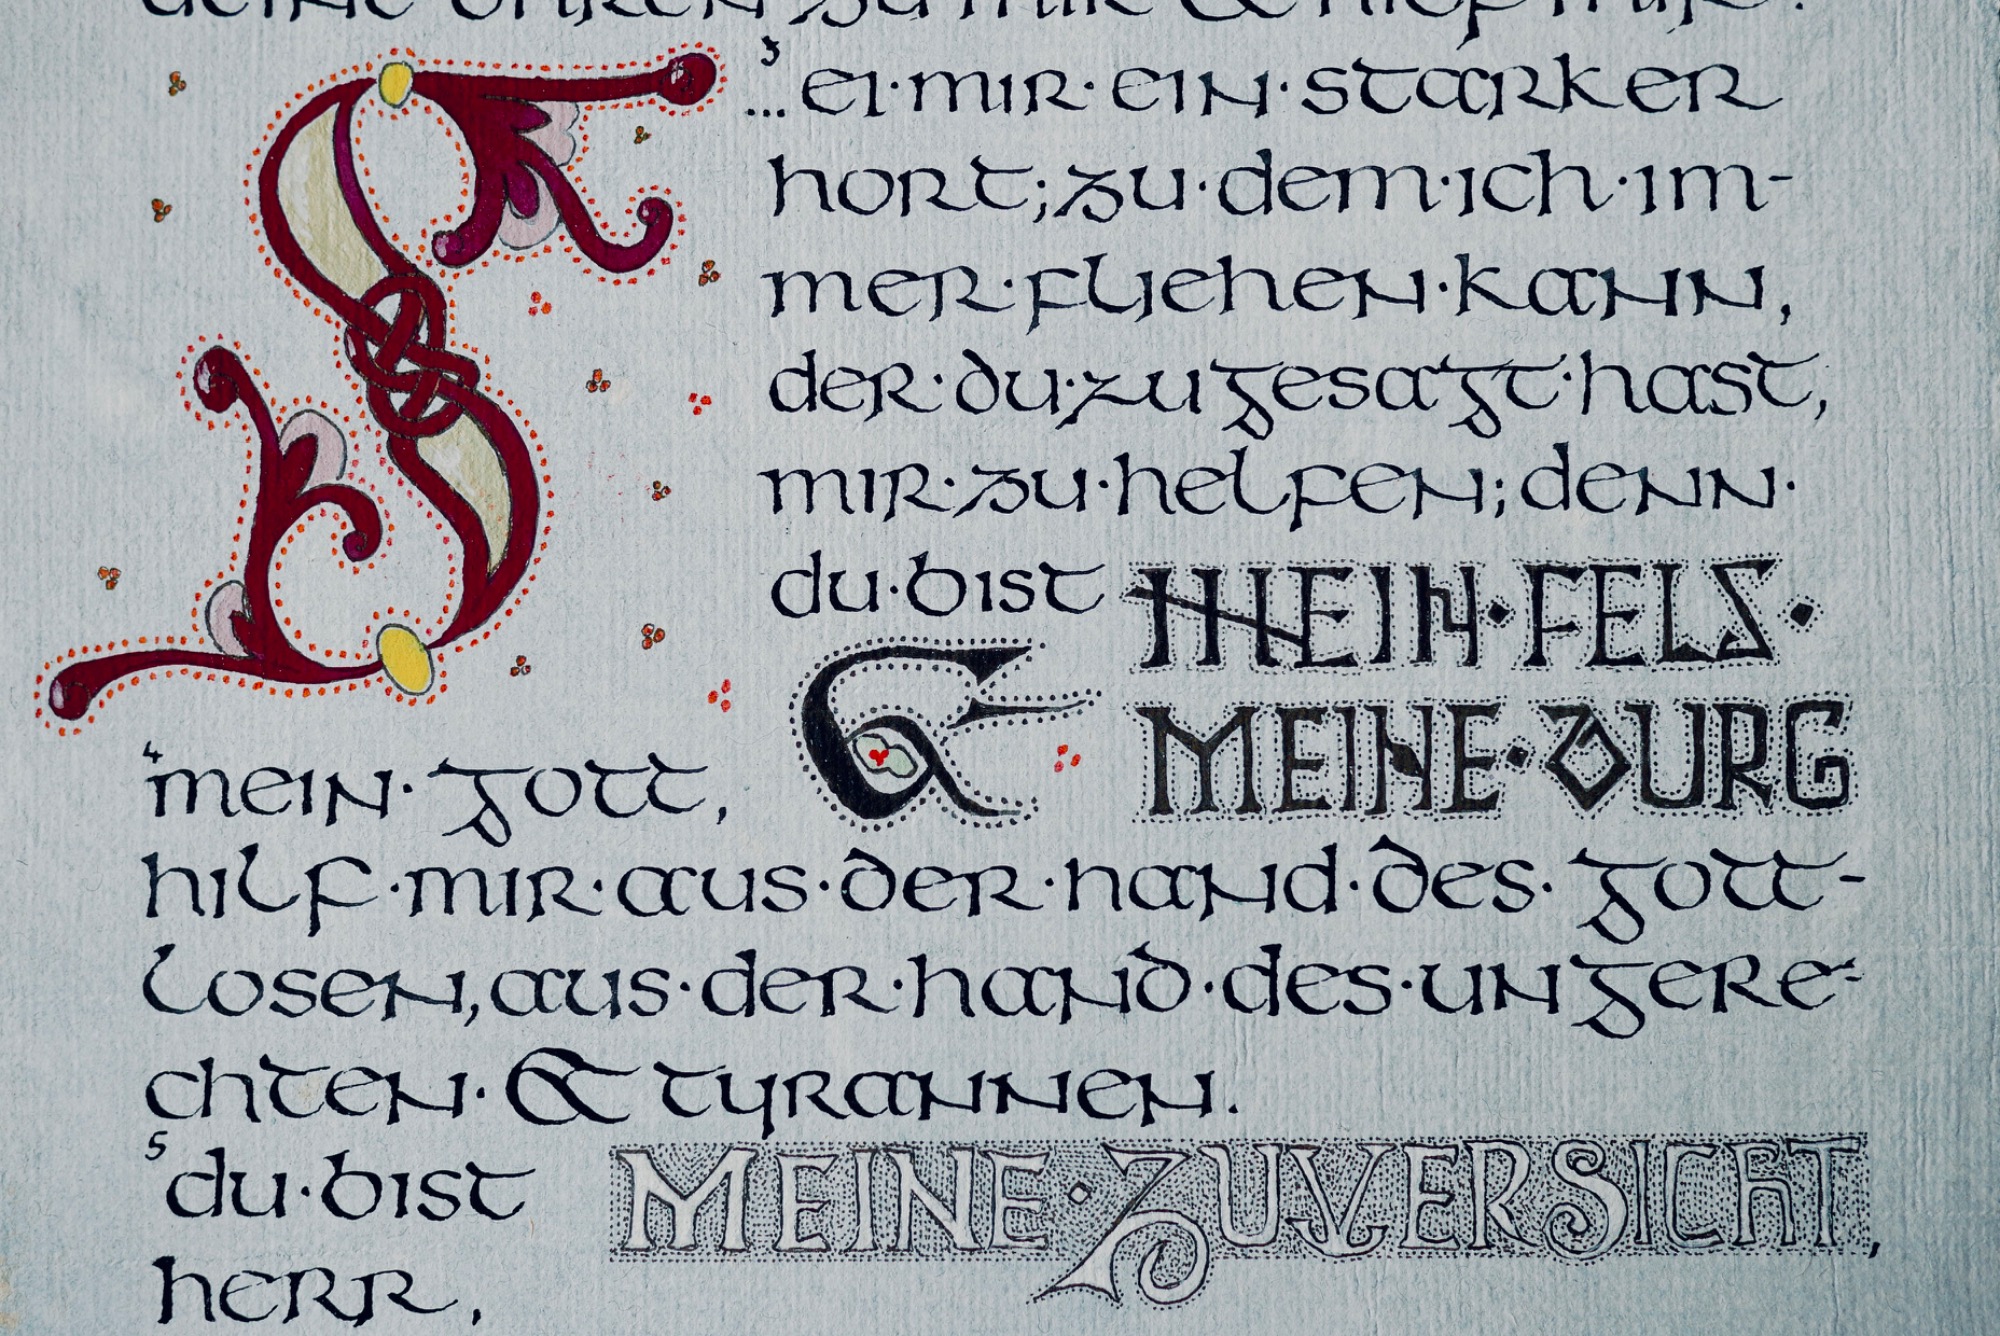 deine ohren zu mir & hilf mir!
3 S...ei·mir·ein·starker
hort; zu·dem·ich·im-
mer·fliehen·kann,
der·du·zugesagt·hast,
mir·zu·helfen; denn·
du·bist MEIN·FELS·
& MEINE·BURG
4 mein·gott,
hilf·mir·aus·der·hand·des·gott-
losen, aus·der·hand·des·ungere-
chten·& tyrannen.
5 du·bist MEINE·ZUVERSICHT,
herr,